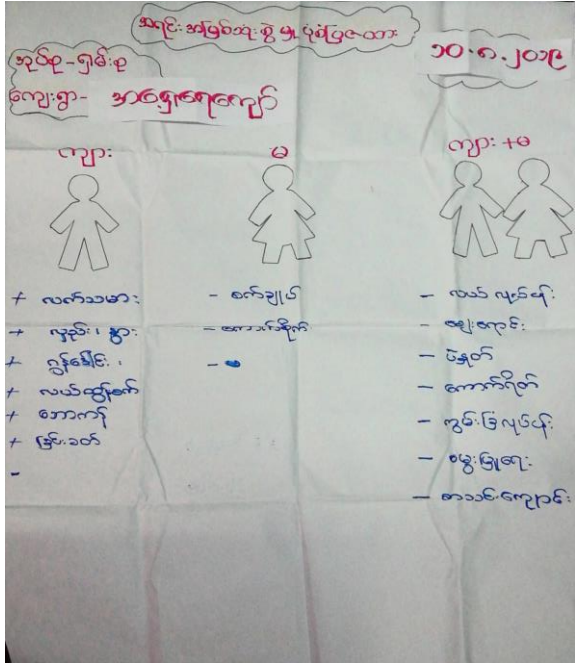 အရင်းအမြစ်သုံးစွဲမှုပုံစံပြဇယား
၁၀.၈.၂၀၁၉
အုပ်စု-ရှမ်းစု
ကျေးရွာ- အရှေ့ရေကျော်
ကျား
မ
ကျား+မ
+ လက်သမား
+ လှည်း၊ နွား
+ ထွန်ခေါင်း၊
+ လယ်ထွန်စက်
+ ဘောကန်
+ ခြင်းခတ်
-
- စက်ချုပ်
- ကောက်စိုက်
-
- လယ်လုပ်ငန်း
- ဈေးရောင်း
- ပဲနှုတ်
- ကောက်ရိတ်
- ကွမ်းခြံလုပ်ငန်း
- မွေးမြူရေး
- စာသင်ကျောင်း